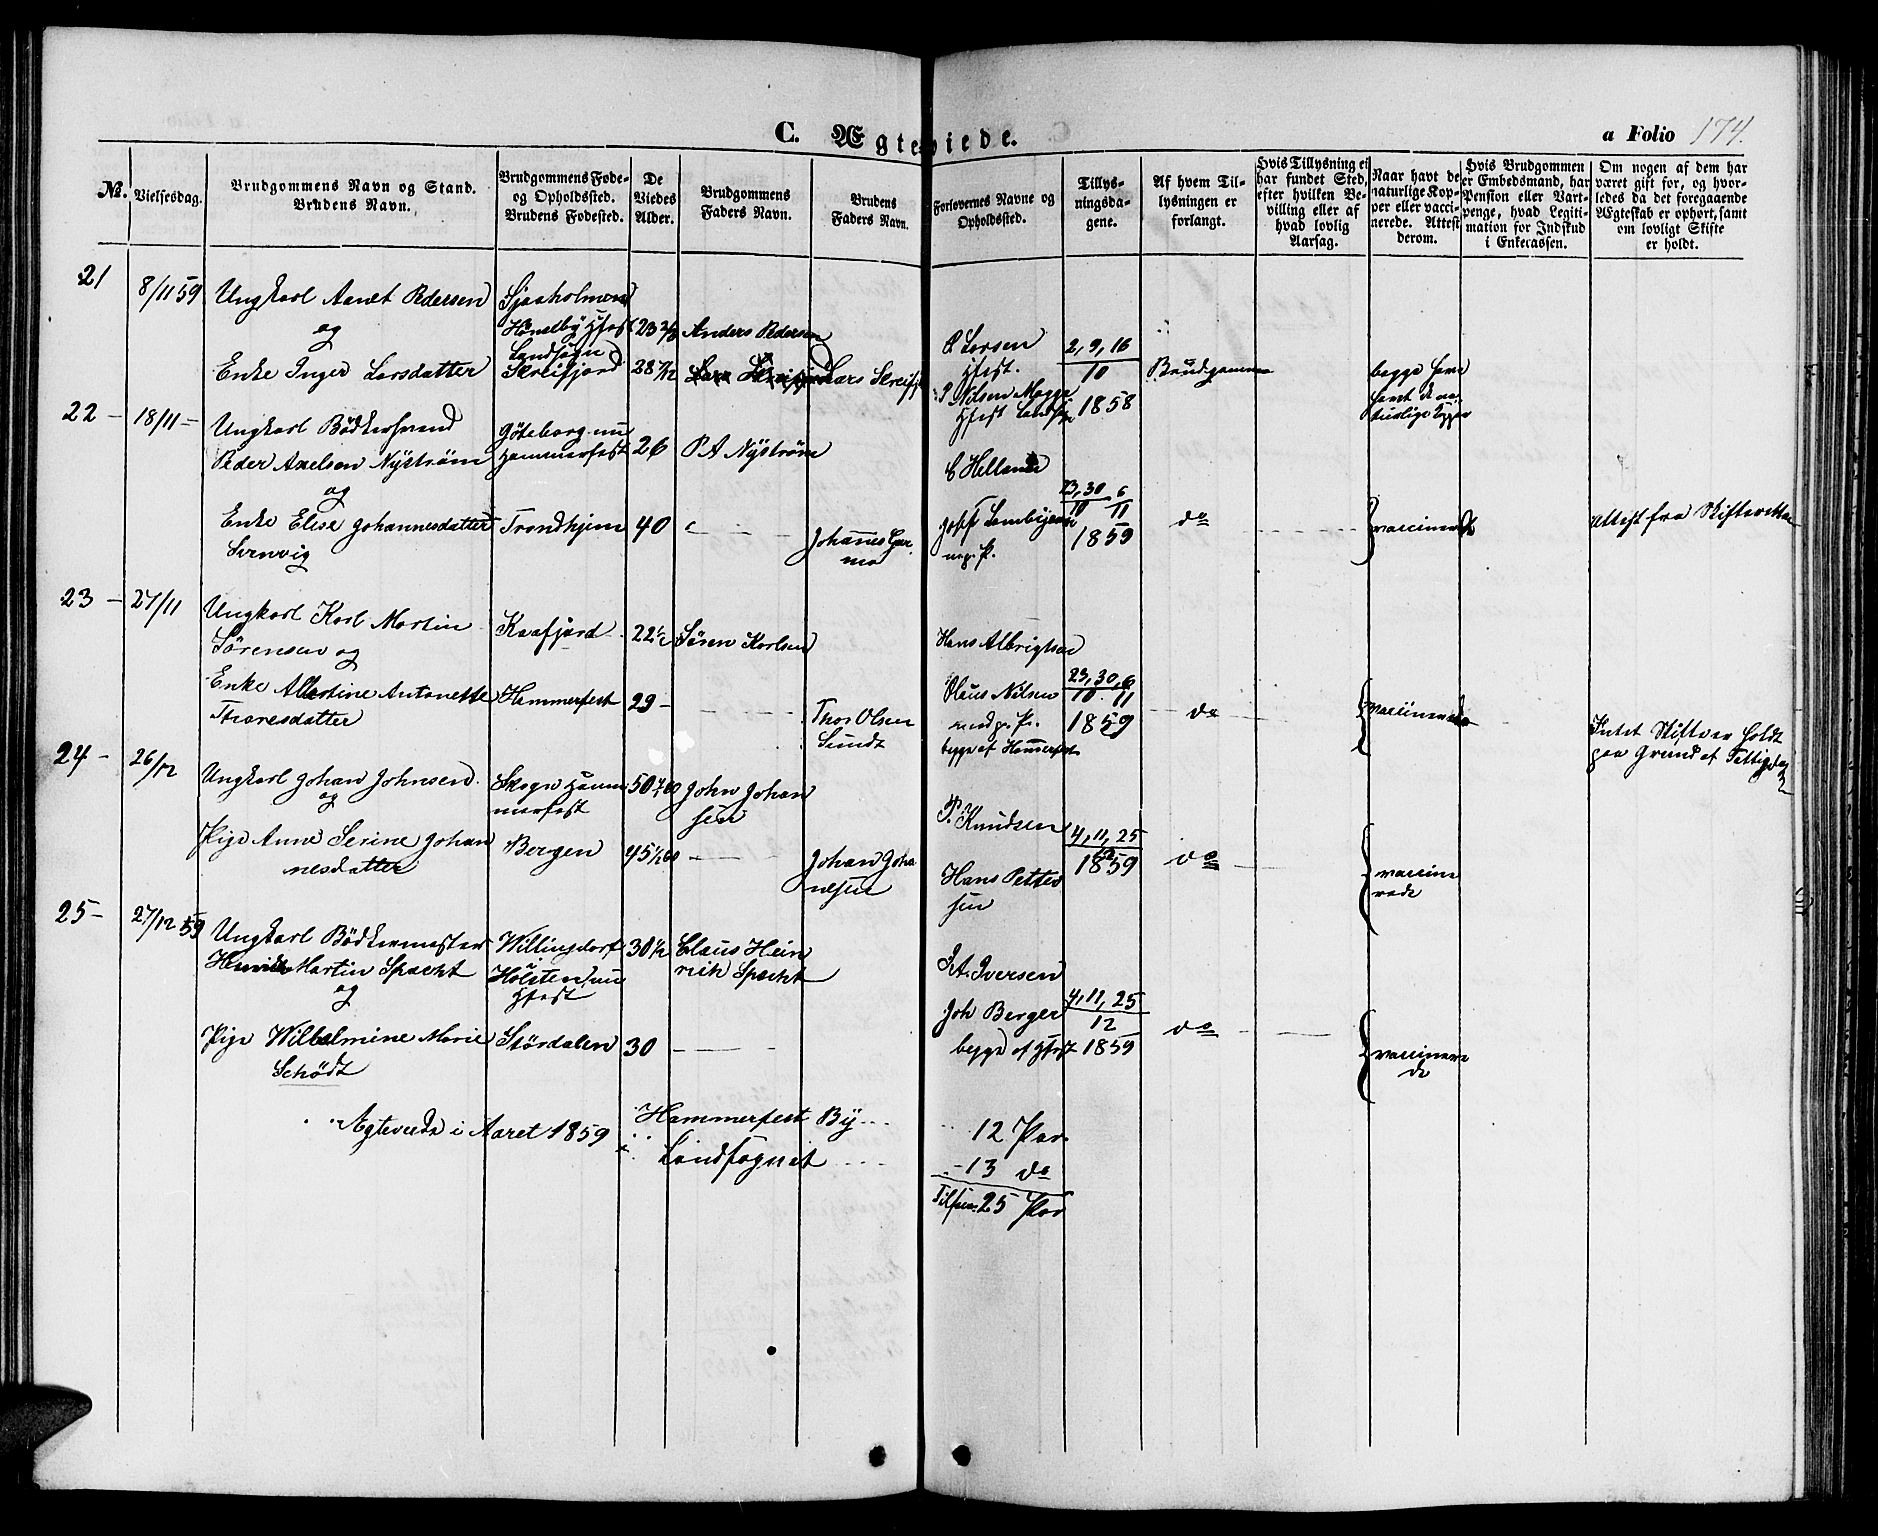 C. Ægteviede.
a Folio 174.
No.
Vielsesdag.
Brudgommens Navn og Stand.
Brudens Navn.
Brudgommens Føde-
og Opholdssted.
Brudens Fødested.
De
Viedes
Alder.
Brudgommens
Faders Navn.
Brudens
Faders Navn.
Forlovernes Navne og
Opholdssted.
Tillys-
ningsda-
gene.
Af hvem Til-
lysningen er
forlangt.
Hvis Tillysning ei
har fundet Sted,
efter hvilken Be-
villing eller af
hvad lovlig
Aarsag.
Naar havt de
naturlige Kop-
per eller vacci-
nerede. Attest
derom.
Hvis Brudgommen
er Embedsmand, har
Pension eller Vart-
penge, hvad Legiti-
mation for Indskud
i Enkecassen.
Om nogen af dem har
været gift før, og hvor-
ledes da det foregaaende
Ægteskab er ophørt, samt
om lovligt Skifte
er holdt.
21
8/11 59
Ungkarl Arndt Pedersen
og
Enke Inger Larsdatter
Sjaaholmen
Landsogn
Skreifjord
23
28 7/12
Anders Pedersen
Lars Skreifj
Larsen
Hfest.
P Nilsen
Hfest
2, 9, 16
10
1858
Brudgommen
begge have
havt de na-
turlige Kopper
22 -
18/11 -
Ungkarl Bødkersvend
Peder Axelsen Nyström
og
Enke Elise Johannesdatter
Svenvig
Gøteborg nu
Hammerfest
Trondhjem
26
40
P A Nyström
Johannes
C Hellan
23, 30 6
10 11
1859
do
vaccinerede
Attest fra Skifteretten
23 -
27/11
Ungkarl Karl Martin
Sørensen og
Enke Albertine Antonette
Thoresdatter
Kaafjord
Hammerfest
22 1/2
29 -
Søren Karlsen
Thor Olsen
Sundt
Hans Albrigtsen
Olaus Nilsen
begge af Hammerfest
23, 30, 6
10 11
1859
do
vaccinerede
Intet Skifte er holdt
paa Grund af Fattigdom
24 -
26/12
Ungkarl Johan Johnsen
og
Pige Anne Serine Johan
nesdatter
Skogn Ham
merfest
Bergen
50
45
John Johan
sen
Johan Joha
nesen
P. Knudsen
Hans Petter
sen
4, 11, 25
12
1859
do
vaccine
rede
25 -
27/12 59
Ungkarl Bødkermester
Henrik Martin Spacht
og
Pige Wilhelmine Marie
Schödt
Willingdorf
i
Holsten, nu
Hfest
Størdalen
30 1/2
30
Claus Hein
rich Spacht
I. A. Iversen
Joh Berger
begge af Hfest
4, 11, 25
12
1859
do
vaccinere
de
Ægteviede i Aaret 1859
Hammerfest By
12 Par.
Landsognet
13 do
Tilsam. 25 Par